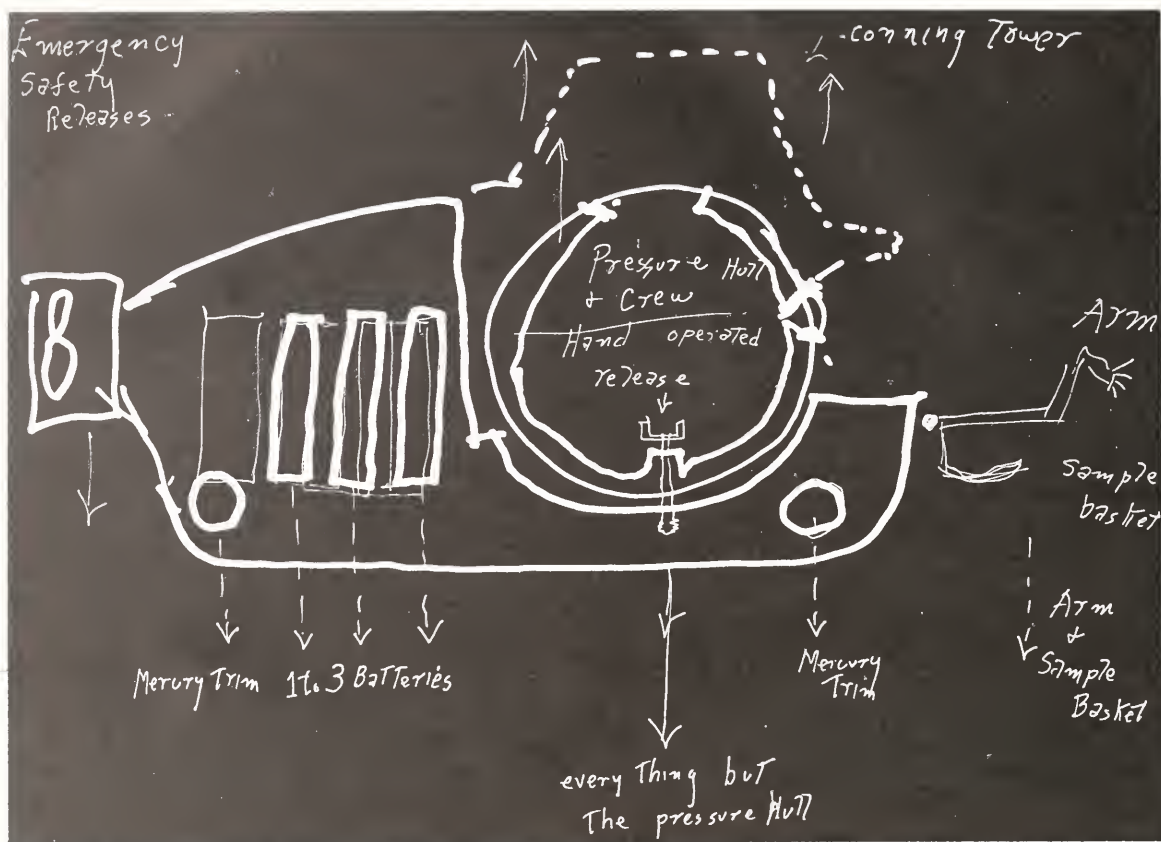 Emergency
Safety
Releases
conning Tower
Pressure Hull
& Crew
Hand operated
release
8
Arm
Sample
basket
Arm
&
Sample
Basket
Mercury Trim
1 to 3 Batteries
Mercury
Trim
every Thing but
The pressure Hull